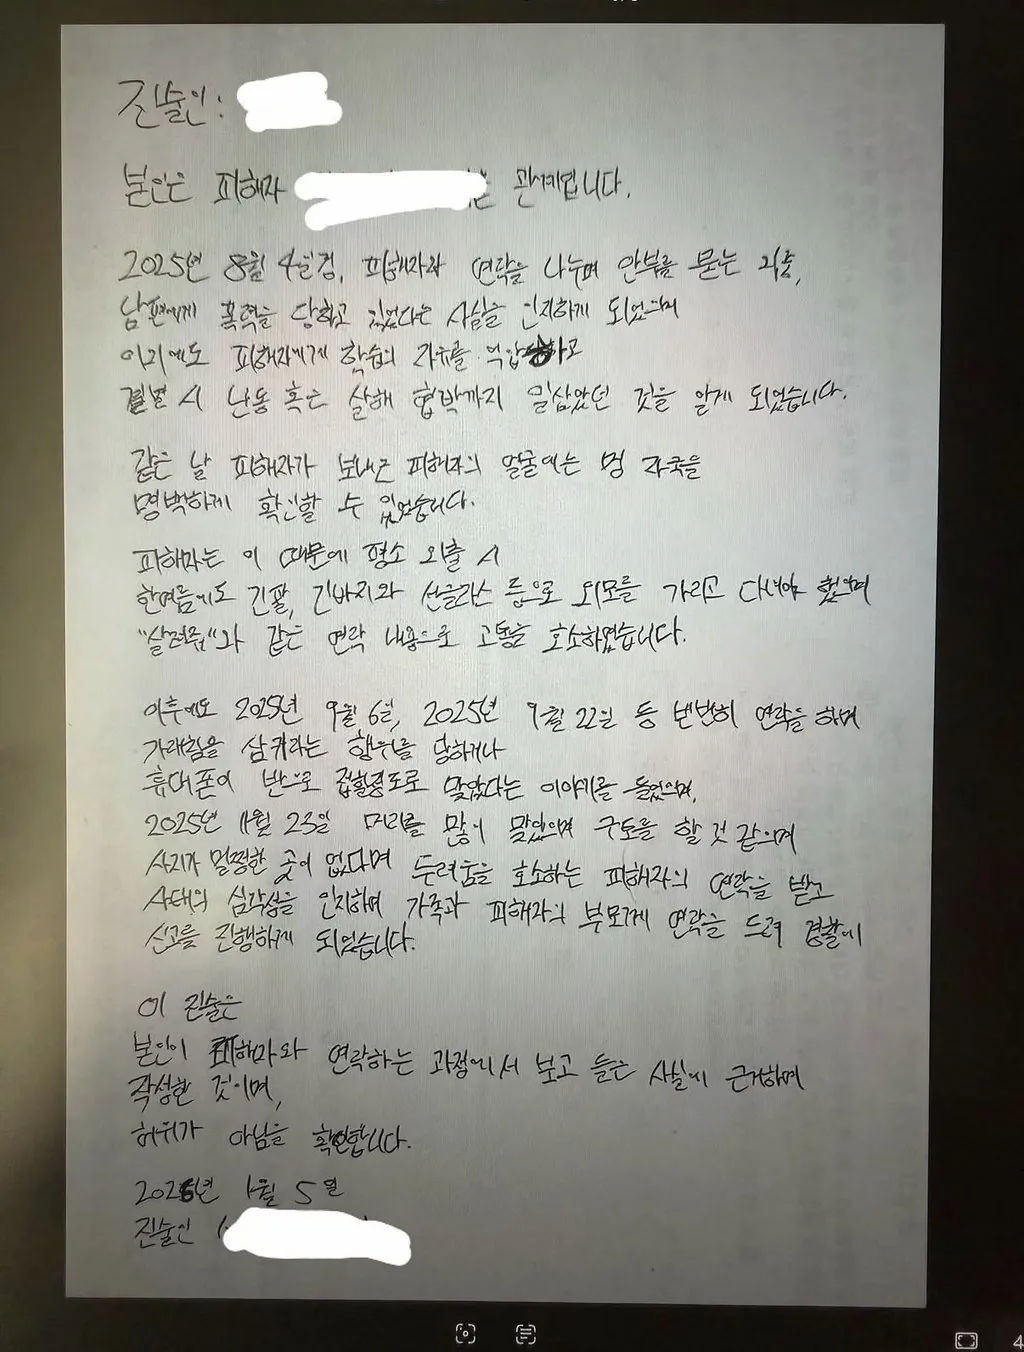 진술인:
본인은 피해자 관계입니다.
2025년 8월 4일경, 피해자와 연락을 나누며 안부를 묻는 과정,
남편에게 폭력을 당하고 있었다는 사실을 인지하게 되었으며
이외에도 피해자에게 학습의 자유를 억압하고
결별 시 난동 혹은 살해 협박까지 일삼았던 것을 알게 되었습니다.
같은 날 피해자가 보내준 피해자의 얼굴에는 멍 자국을
명백하게 확인할 수 있었습니다.
피해자는 이 때문에 평소 외출 시
한여름에도 긴팔, 긴바지와 선글라스 등으로 외모를 가리고 다녀야 했으며
"살려줘"와 같은 연락 내용으로 고통을 호소하였습니다.
이후에도 2025년 9월 6일, 2025년 9월 22일 등 빈번히 연락을 하며
가래침을 삼키라는 행위를 당하거나
휴대폰이 반으로 접힐정도로 맞았다는 이야기를 들었으며,
2025년 11월 23일 머리를 많이 맞았으며 구토를 할 것 같으며
사지가 멀쩡한 곳이 없다며 두려움을 호소하는 피해자의 연락을 받고
사태의 심각성을 인지하며 가족과 피해자의 부모께 연락을 드려 경찰에
신고를 진행하게 되었습니다.
이 진술은
본인이 피해자와 연락하는 과정에서 보고 들은 사실에 근거하며
작성한 것이며,
허위가 아님을 확인합니다.
2026년 1월 5일
진술인